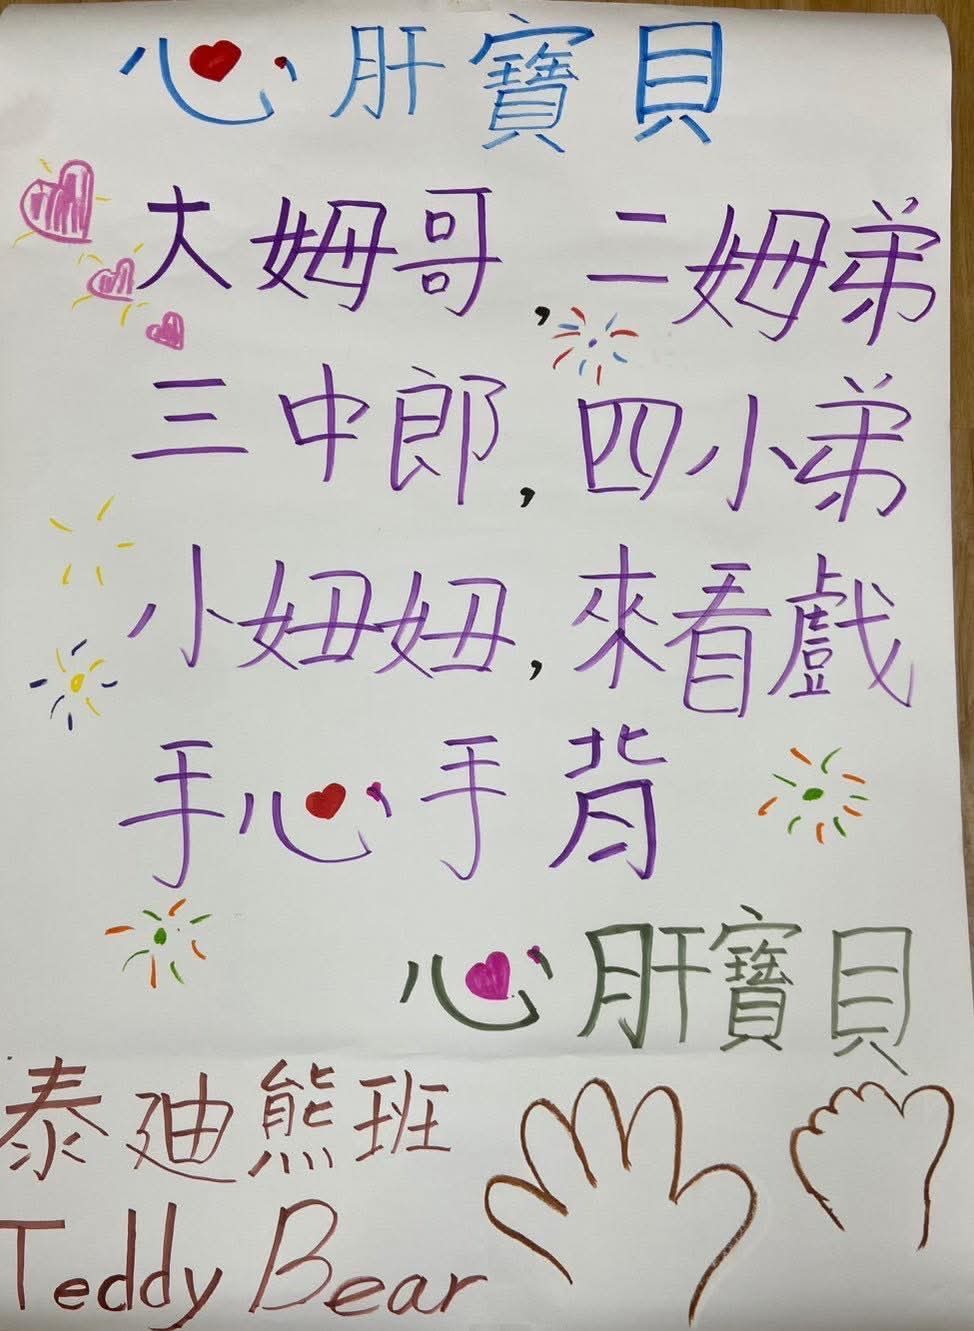 心肝寶貝
大姆哥,二姆弟
三中郎,四小弟
小妞妞,來看戲
手心手背
心肝寶貝
泰迪熊班
Teddy Bear